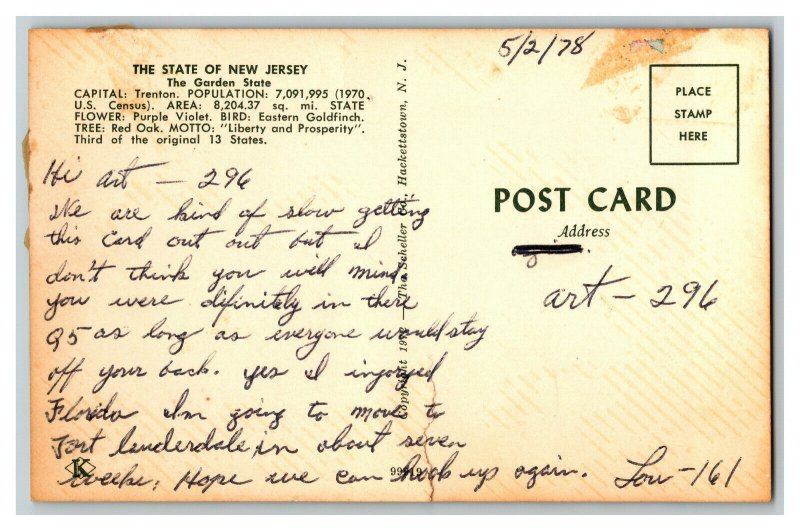 5/2/78
THE STATE OF NEW JERSEY
The Garden State
CAPITAL: Trenton. POPULATION: 7,091,995 (1970
U.S. Census). AREA: 8,204.37 sq. mi. STATE
FLOWER: Purple Violet. BIRD: Eastern Goldfinch.
TREE: Red Oak. MOTTO: "Liberty and Prosperity".
Third of the original 13 States.
Hi art — 296
We are kind of slow getting
this card out out but I
don't think you will mind
you were difinitely in there
Q5 as long as everyone would stay
off your back. yes I injoyed
Florida Im going to move to
Fort lauderdale in about seven
weeks, Hope we can hook up again. Lou-161
K
99919
Copyright 197 — The Scheller Co., Hackettstown, N. J.
PLACE
STAMP
HERE
POST CARD
Address
art — 296